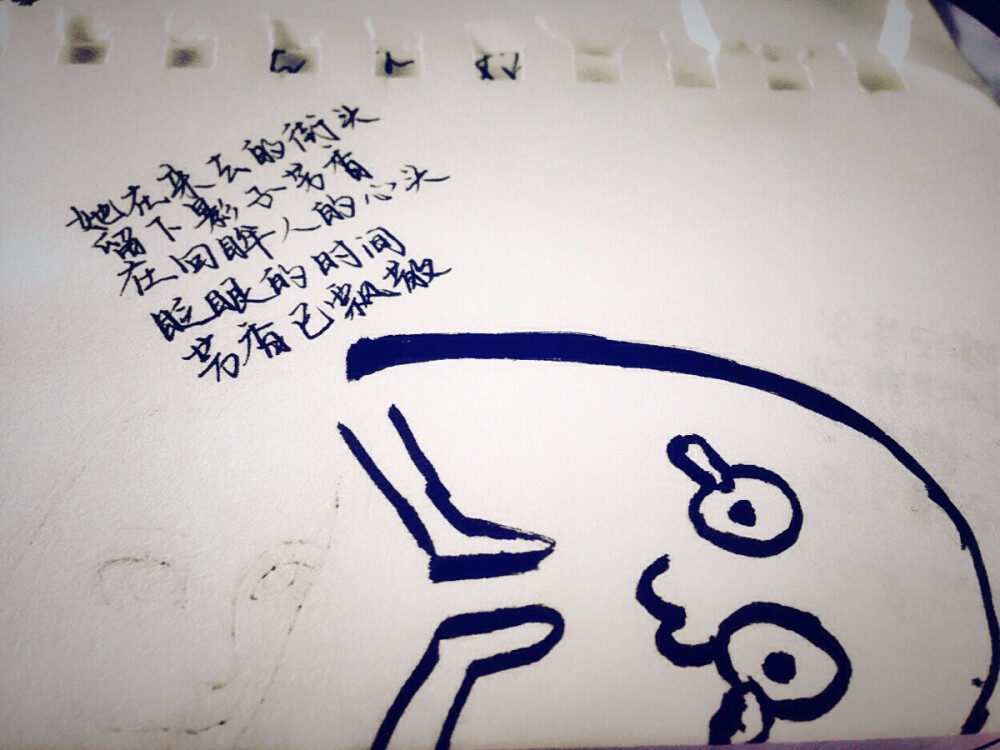 她在来去的街头
留下影子芳香
在回眸人的心头
眨眼的时间
芳香已飘散